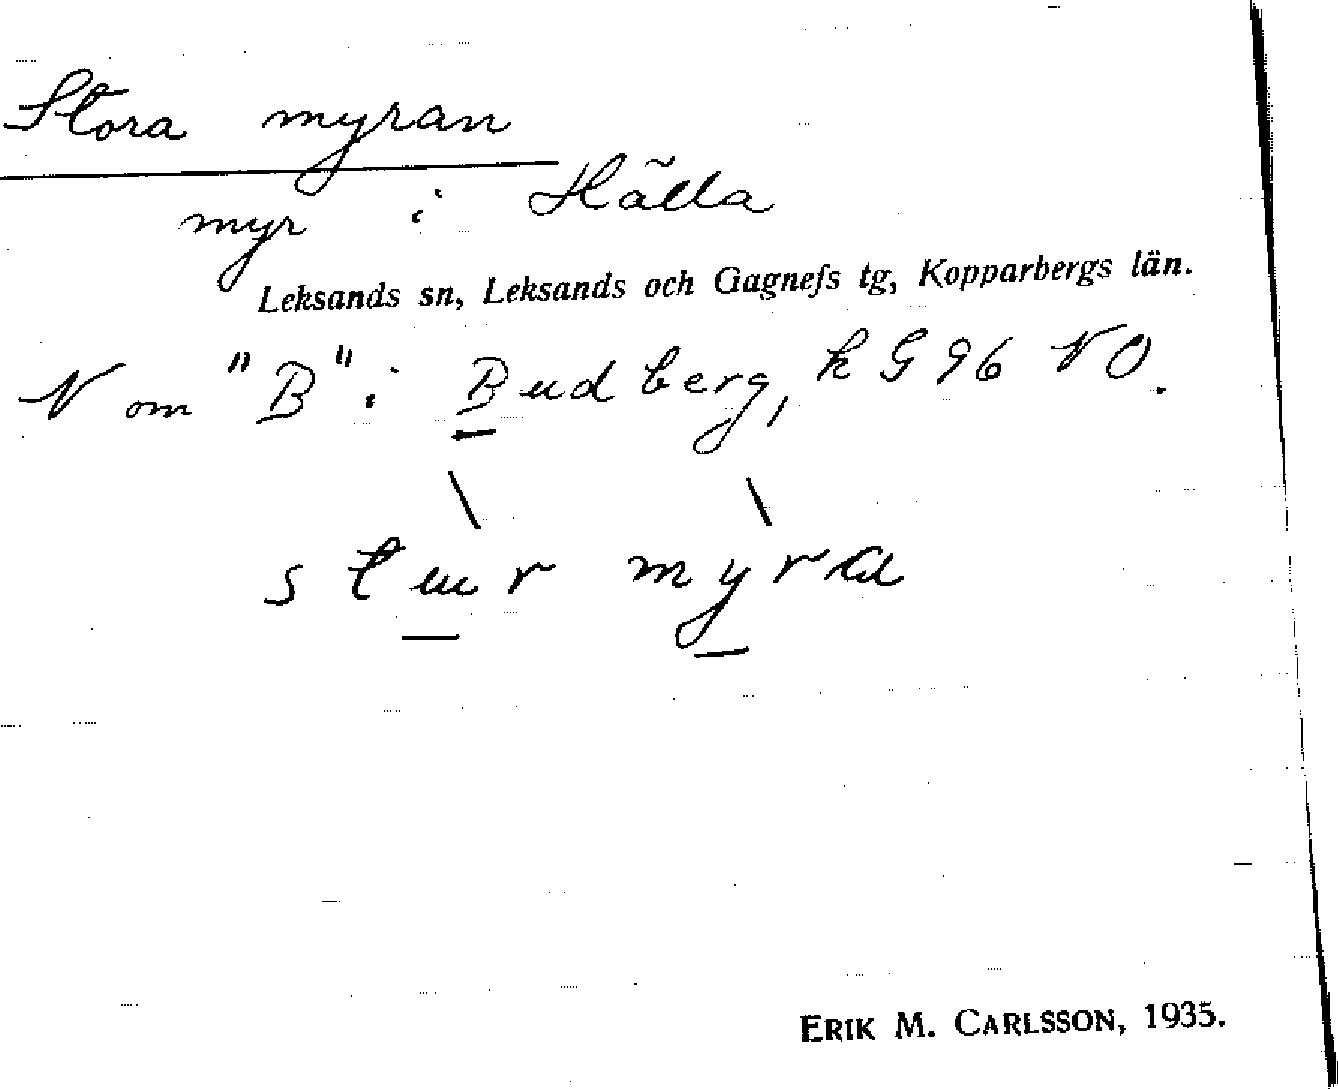 Stora myran
myr i Hälla
Leksands sn, Leksands och Gagnefs tg, Kopparbergs län.
N om "B" i Budberg, k G 96 NO.
stur myra
ERIK M. CARLSSON, 1935.